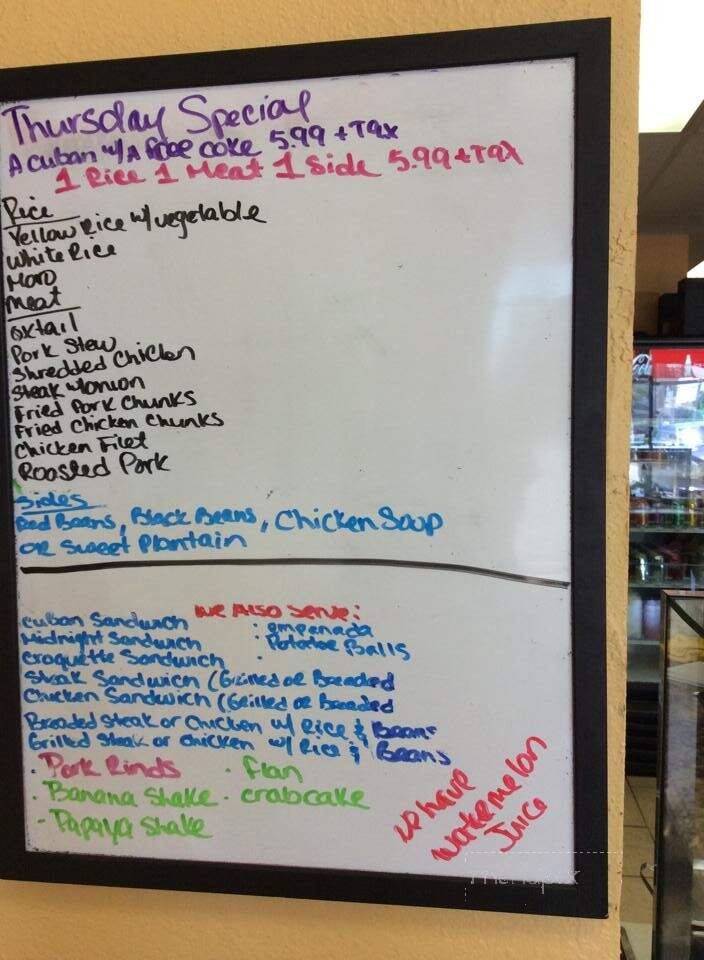 Thursday Special
A Cuban w/A free coke 5.99 + Tax
1 Rice 1 Meat 1 Side 5.99 + Tax
Rice
Yellow Rice w/vegetable
White Rice
Moro
Meat
Oxtail
Pork Stew
Shredded Chicken
Steak w/onion
Fried Pork Chunks
Fried Chicken Chunks
Chicken Filet
Roasted Pork
Sides
Red Beans, Black Beans, Chicken Soup
OR Sweet Plantain
We Also Serve:
Cuban Sandwich
Midnight Sandwich
Croquette Sandwich
Steak Sandwich (Grilled or Breaded
Chicken Sandwich (Grilled or Breaded
Breaded Steak or Chicken w/ Rice & Beans
Grilled Steak or chicken w/ Rice & Beans
· empenada
· Potatoe Balls
· Pork Rinds
· Banana Shake
- Papaya Shake
· Flan
· crabcake
we have
watermelon
Juice